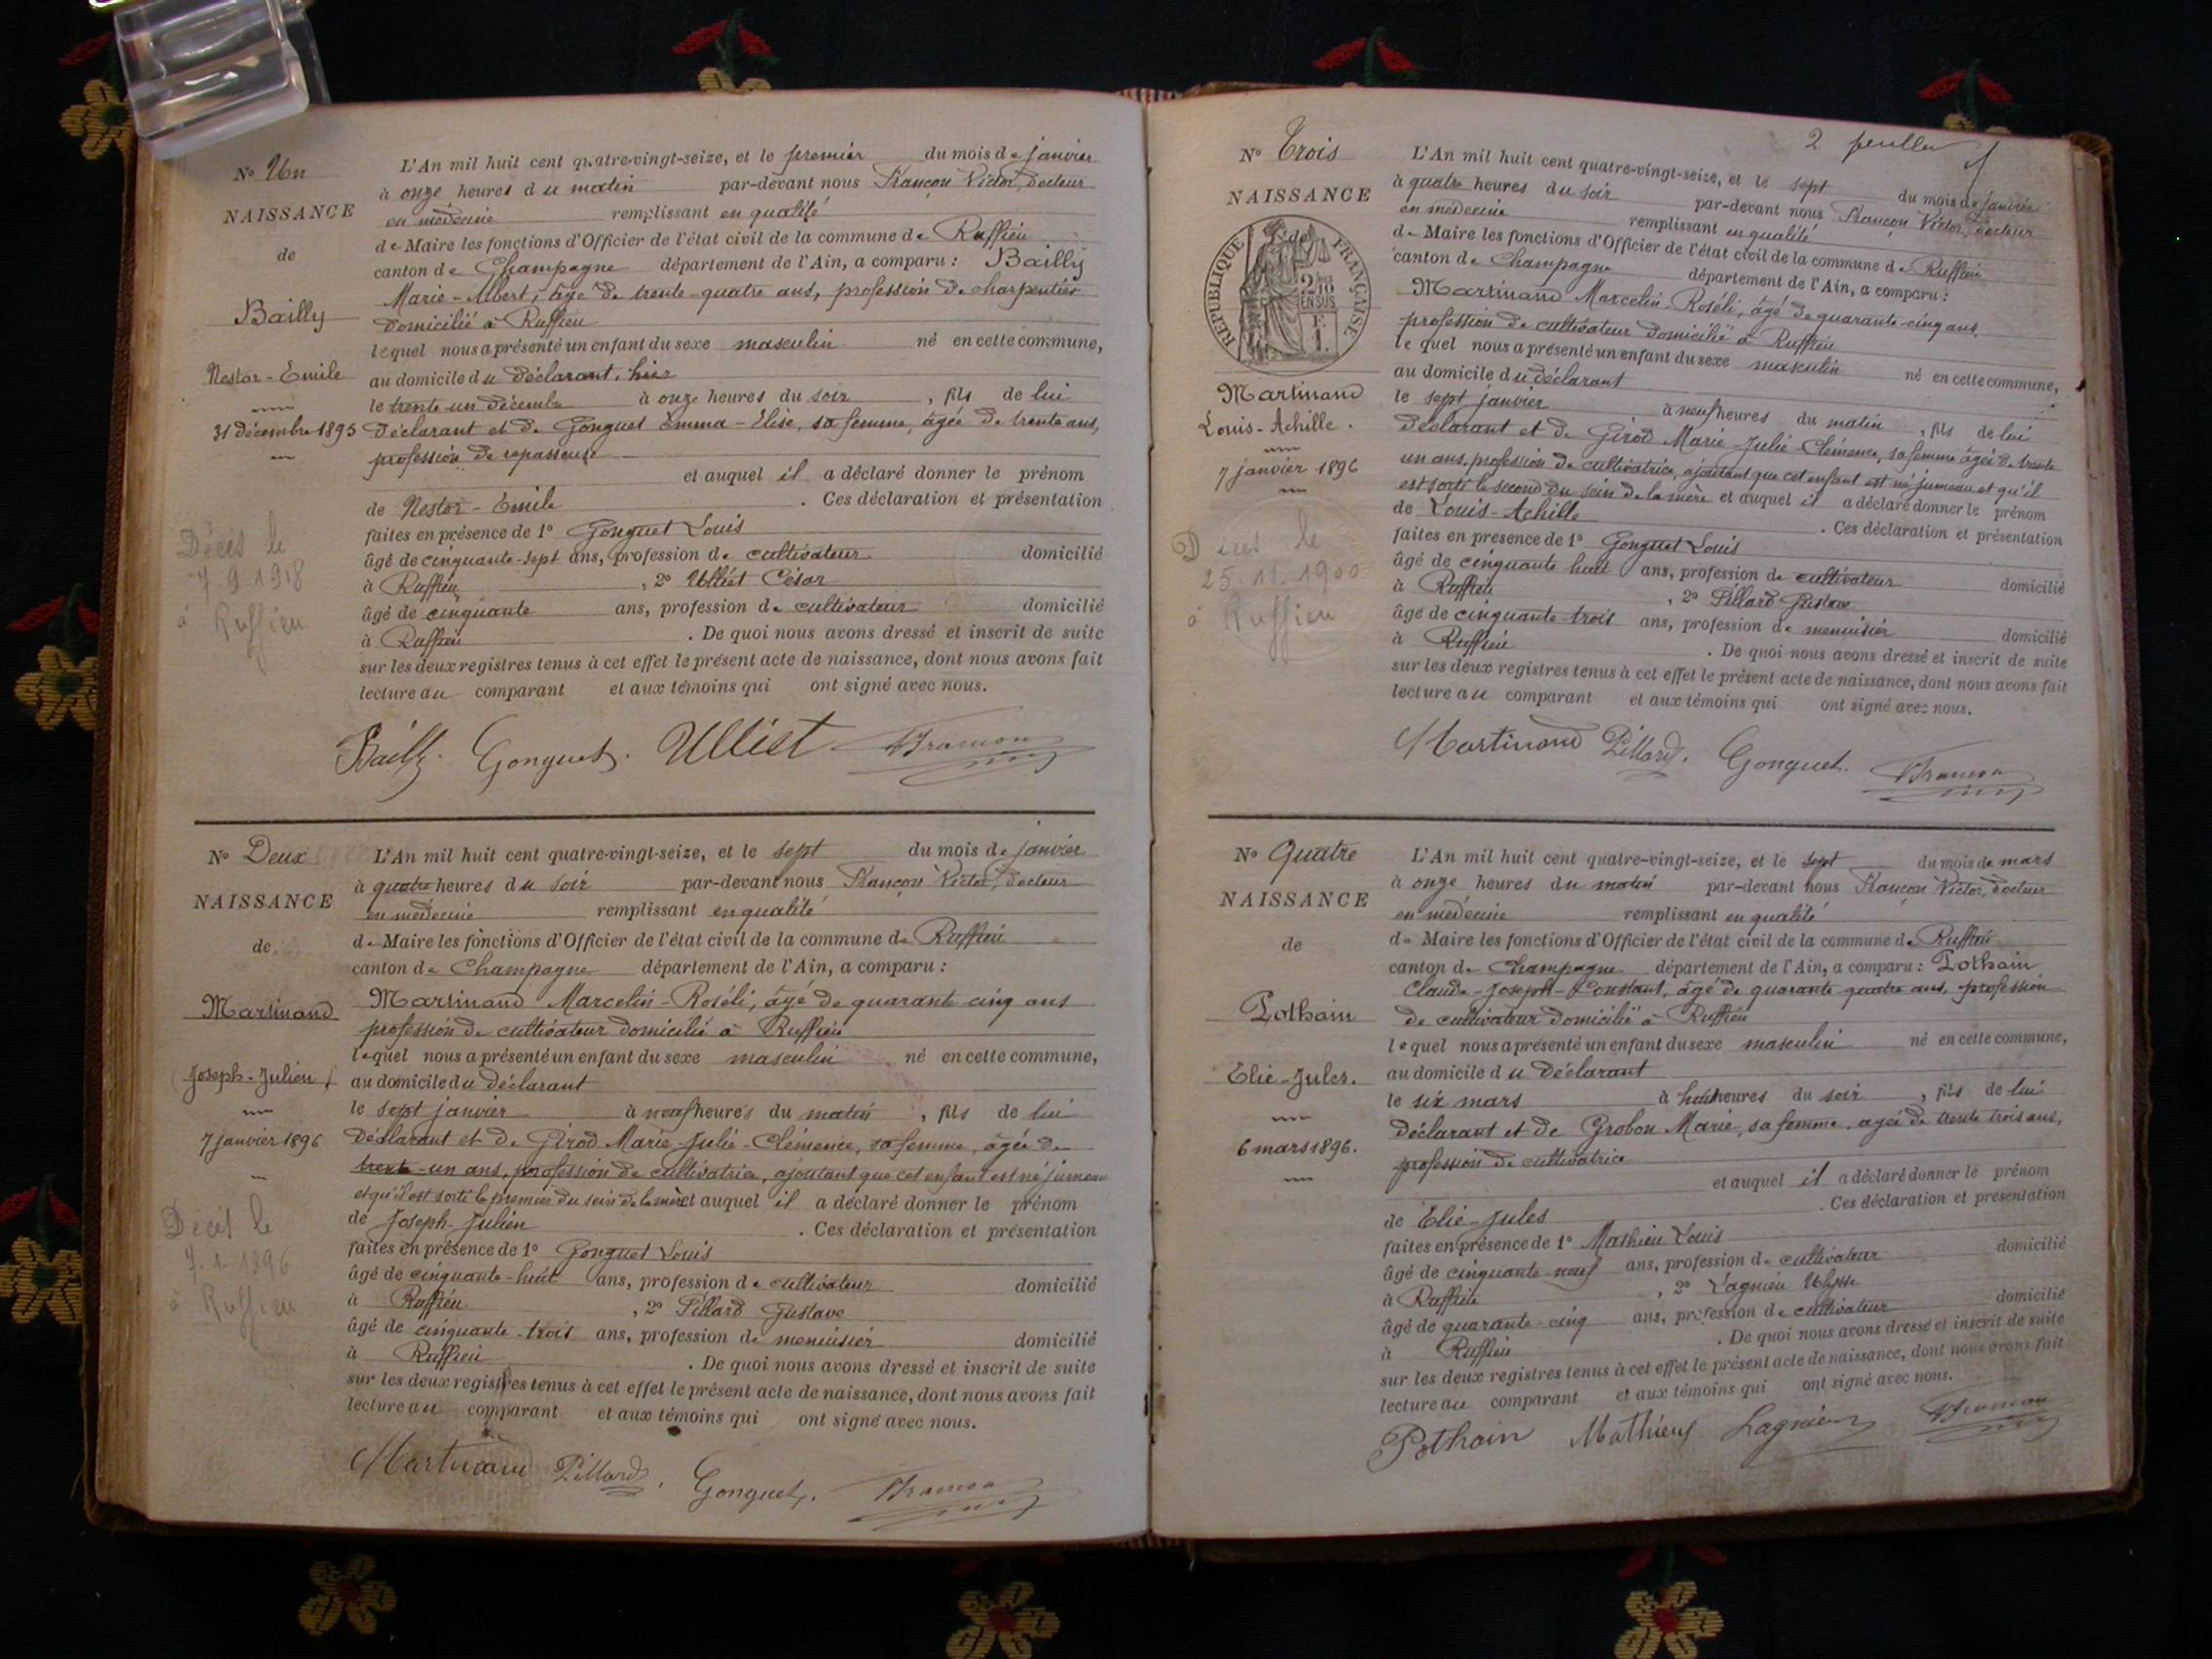 N° Un
NAISSANCE
de
Bailly
Nestor-Emile
31 décembre 1895
Décès le
7.9.1918
à Ruffieu
L'An mil huit cent quatre-vingt-seize, et le premier du mois de janvier
à onze heures du matin par-devant nous Françon Victor, docteur
en médecine remplissant en qualité
de Maire les fonctions d'Officier de l'état civil de la commune de Ruffieu
canton de Champagne département de l'Ain, a comparu : Bailly
Marie-Albert, âgé de trente-quatre ans, profession de charpentier
domicilié à Ruffieu
lequel nous a présenté un enfant du sexe masculin né en cette commune,
au domicile du déclarant, hier
le trente-un décembre à onze heures du soir, fils de lui
déclarant et de Gonguet Emma-Elise, sa femme, âgée de trente ans,
profession de repasseuse
et auquel il a déclaré donner le prénom
de Nestor-Emile. Ces déclaration et présentation
faites en présence de 1° Gonguet Louis
âgé de cinquante-sept ans, profession de cultivateur domicilié
à Ruffieu, 2° Ulliet César
âgé de cinquante ans, profession de cultivateur domicilié
à Ruffieu. De quoi nous avons dressé et inscrit de suite
sur les deux registres tenus à cet effet le présent acte de naissance, dont nous avons fait
lecture au comparant et aux témoins qui ont signé avec nous.
Bailly. Gonguet. Ulliet VFrançon
N° Deux
NAISSANCE
de
Martinand
Joseph-Julien
7 janvier 1896
Décès le
7.1.1896
à Ruffieu
L'An mil huit cent quatre-vingt-seize, et le sept du mois de janvier
à quatre heures du soir par-devant nous Françon Victor, docteur
en médecine remplissant en qualité
de Maire les fonctions d'Officier de l'état civil de la commune de Ruffieu
canton de Champagne département de l'Ain, a comparu :
Martinand Marcelin-Roséli, âgé de quarante cinq ans
profession de cultivateur domicilié à Ruffieu
lequel nous a présenté un enfant du sexe masculin né en cette commune,
au domicile du déclarant
le sept janvier à neuf heures du matin, fils de lui
déclarant et de Girod Marie-Julie-Clémence, sa femme, âgée de
trente-un ans, profession de cultivatrice, ajoutant que cet enfant est né jumeau
et qu'il est sorti le premier du sein de la mère et auquel il a déclaré donner le prénom
de Joseph-Julien. Ces déclaration et présentation
faites en présence de 1° Gonguet Louis
âgé de cinquante-huit ans, profession de cultivateur domicilié
à Ruffieu, 2° Pillard Gustave
âgé de cinquante-trois ans, profession de menuisier domicilié
à Ruffieu. De quoi nous avons dressé et inscrit de suite
sur les deux registres tenus à cet effet le présent acte de naissance, dont nous avons fait
lecture au comparant et aux témoins qui ont signé avec nous.
Martinand Pillard. Gonguet. VFrançon
2 feuillet
N° Trois
NAISSANCE
de
RÉPUBLIQUE FRANÇAISE
2/10 EN SUS
F.
1.
Martinand
Louis-Achille.
7 janvier 1896
Décès le
25.11.1900
à Ruffieu
L'An mil huit cent quatre-vingt-seize, et le sept du mois de janvier
à quatre heures du soir par-devant nous Françon Victor, docteur
en médecine remplissant en qualité
de Maire les fonctions d'Officier de l'état civil de la commune de Ruffieu
canton de Champagne département de l'Ain, a comparu :
Martinand Marcelin-Roséli, âgé de quarante-cinq ans
profession de cultivateur domicilié à Ruffieu
lequel nous a présenté un enfant du sexe masculin né en cette commune,
au domicile du déclarant
le sept janvier à neuf heures du matin, fils de lui
déclarant et de Girod Marie-Julie-Clémence, sa femme âgée de trente
un ans, profession de cultivatrice, ajoutant que cet enfant est né jumeau et qu'il
est sorti le second du sein de la mère et auquel il a déclaré donner le prénom
de Louis-Achille. Ces déclaration et présentation
faites en présence de 1° Gonguet Louis
âgé de cinquante huit ans, profession de cultivateur domicilié
à Ruffieu, 2° Pillard Gustave
âgé de cinquante-trois ans, profession de menuisier domicilié
à Ruffieu. De quoi nous avons dressé et inscrit de suite
sur les deux registres tenus à cet effet le présent acte de naissance, dont nous avons fait
lecture au comparant et aux témoins qui ont signé avec nous.
Martinand Pillard. Gonguet. VFrançon
N° Quatre
NAISSANCE
de
Pothain
Elie-Jules.
6 mars 1896.
L'An mil huit cent quatre-vingt-seize, et le sept du mois de mars
à onze heures du matin par-devant nous Françon Victor, docteur
en médecine remplissant en qualité
de Maire les fonctions d'Officier de l'état civil de la commune de Ruffieu
canton de Champagne département de l'Ain, a comparu : Pothain
Claude-Joseph-Constant, âgé de quarante quatre ans, profession
de cultivateur domicilié à Ruffieu
lequel nous a présenté un enfant du sexe masculin né en cette commune,
au domicile du déclarant
le six mars à huit heures du soir, fils de lui
déclarant et de Grobon Marie, sa femme, agée de trente trois ans,
profession de cultivatrice
et auquel il a déclaré donner le prénom
de Elie-Jules. Ces déclaration et présentation
faites en présence de 1° Mathieu Louis
âgé de cinquante-neuf ans, profession de cultivateur domicilié
à Ruffieu, 2° Lagnieu Ulysse
âgé de quarante-cinq ans, profession de cultivateur domicilié
à Ruffieu. De quoi nous avons dressé et inscrit de suite
sur les deux registres tenus à cet effet le présent acte de naissance, dont nous avons fait
lecture au comparant et aux témoins qui ont signé avec nous.
Pothain Mathieu Lagnieu VFrançon